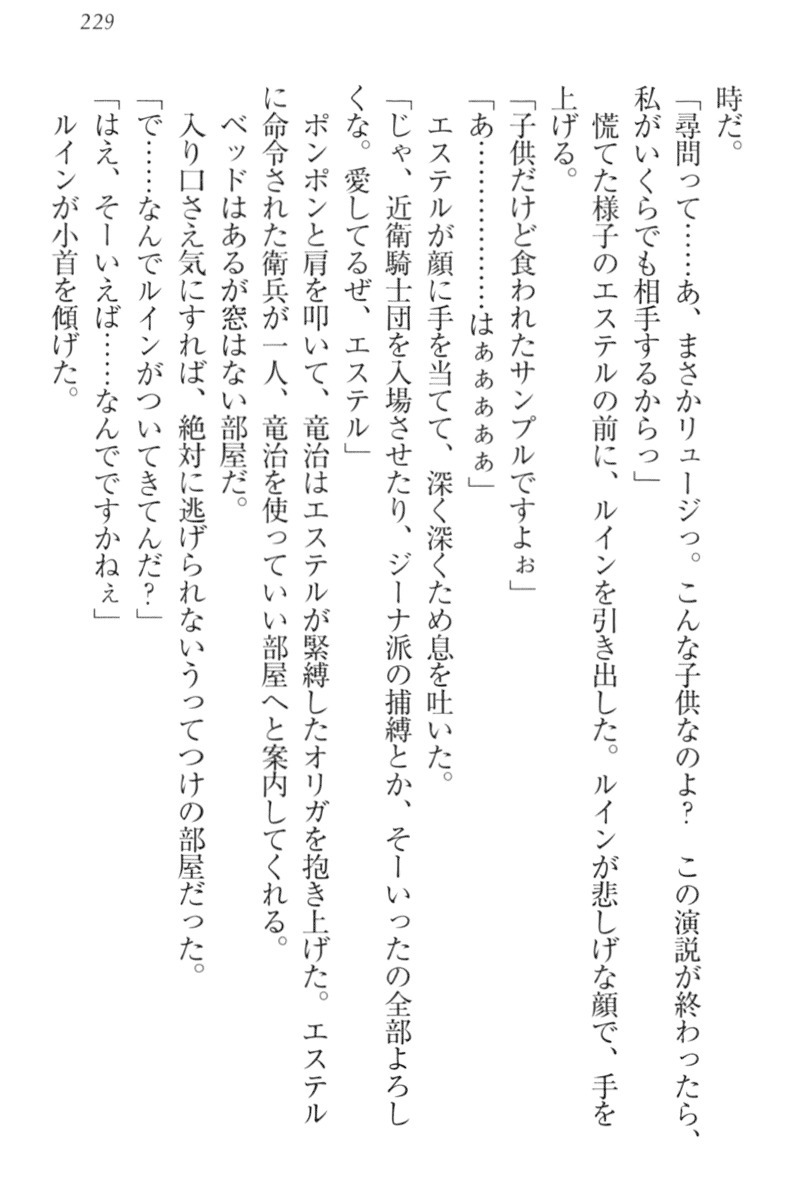 229
時だ。
「尋問って……あ、まさかリュージっ。こんな子供なのよ?　この演説が終わったら、
私がいくらでも相手するからっ」
　慌てた様子のエステルの前に、ルインを引き出した。ルインが悲しげな顔で、手を
上げる。
「子供だけど食われたサンプルですよぉ」
「あ………………はぁぁぁぁぁ」
　エステルが顔に手を当てて、深く深くため息を吐いた。
「じゃ、近衛騎士団を入場させたり、ジーナ派の捕縛とか、そーいったの全部よろし
くな。愛してるぜ、エステル」
　ポンポンと肩を叩いて、竜治はエステルが緊縛したオリガを抱き上げた。エステル
に命令された衛兵が一人、竜治を使っていい部屋へと案内してくれる。
　ベッドはあるが窓はない部屋だ。
　入り口さえ気にすれば、絶対に逃げられないうってつけの部屋だった。
「で……なんでルインがついてきてんだ?」
「はえ、そーいえば……なんでですかねぇ」
　ルインが小首を傾げた。